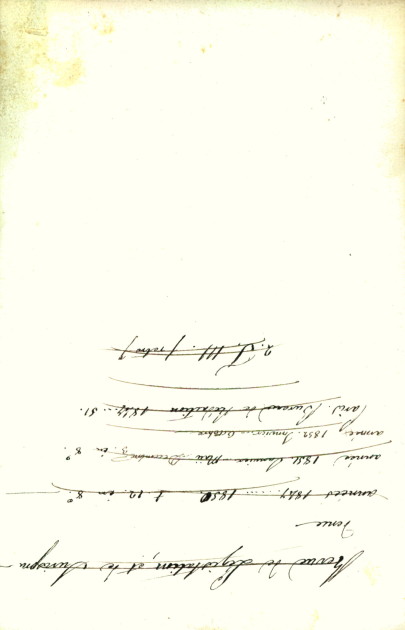 Revue de Législation et de Jurispru-
dence
années 1847..... 1850. t. 12. in 8.°
année 1851. Janvier - Mai Décembre. in 8.°
année 1852. Janvier - Octobre
Paris. Bureau de Rédaction 1847..51.
2. J. III. (retro)